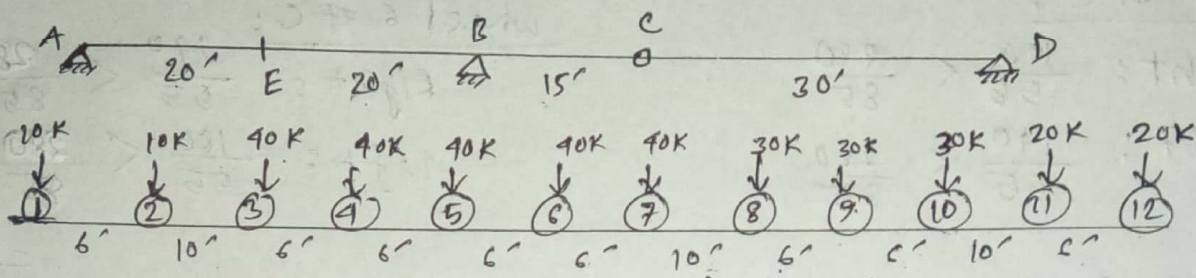 A B C D
20´ E 20´ 15´ 30´
10K 10K 40K 40K 40K 40K 40K 30K 30K 30K 20K 20K
1 2 3 4 5 6 7 8 9 10 11 12
6´ 10´ 6´ 6´ 6´ 6´ 10´ 6´ 6´ 10´ 6´